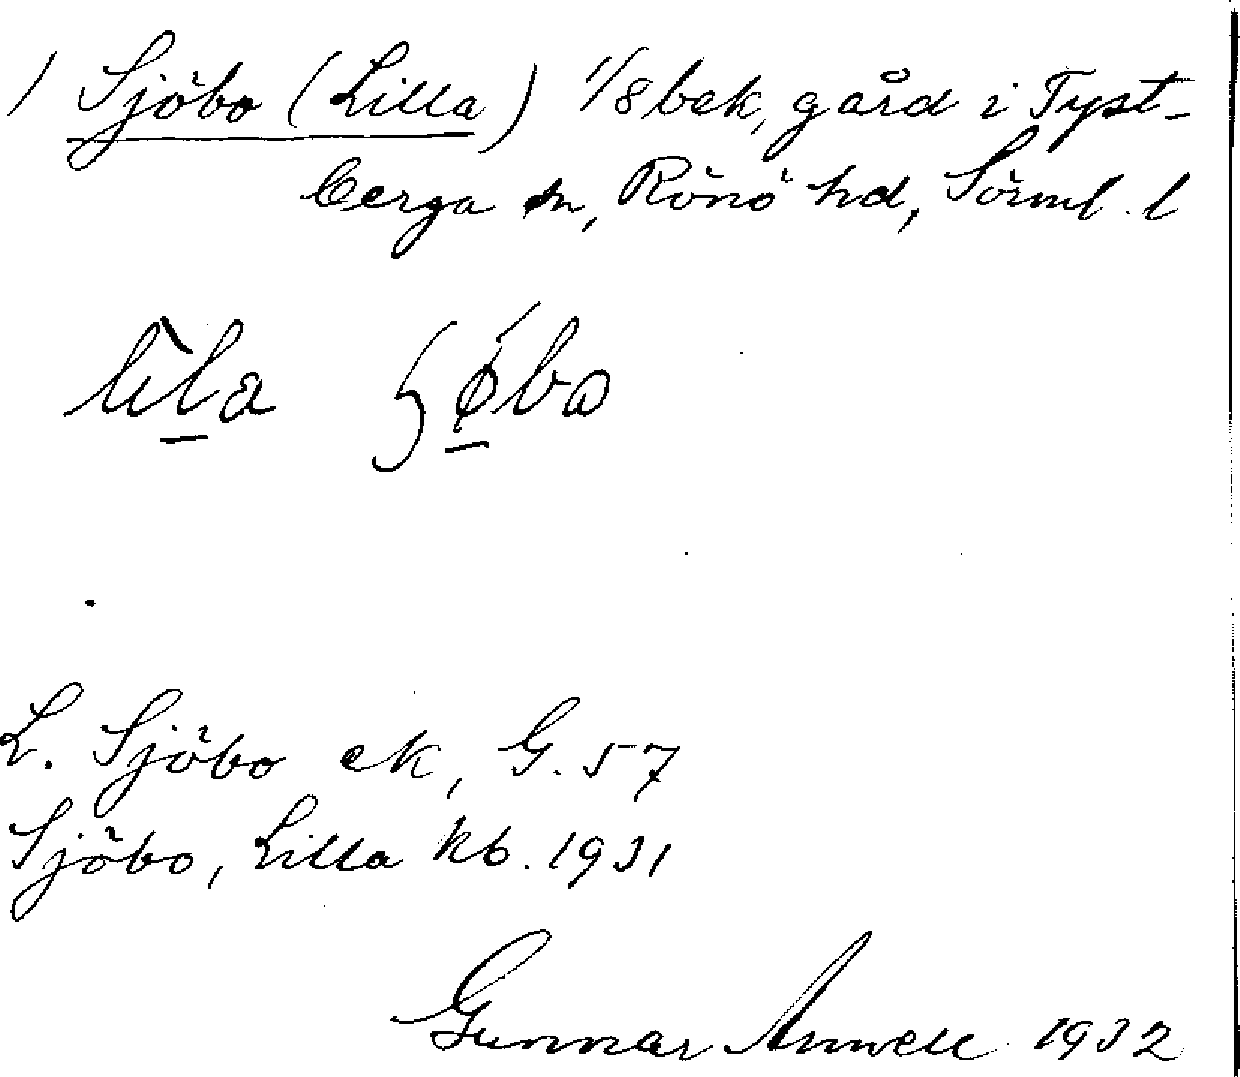 1 Sjöbo (Lilla) 1/8 bek, gård i Tyst-
berga sn, Rönö hd, Sörml. l
L. Sjöbo ek, G. 57
Sjöbo, Lilla kb. 1931
Gunnar Annell 1932